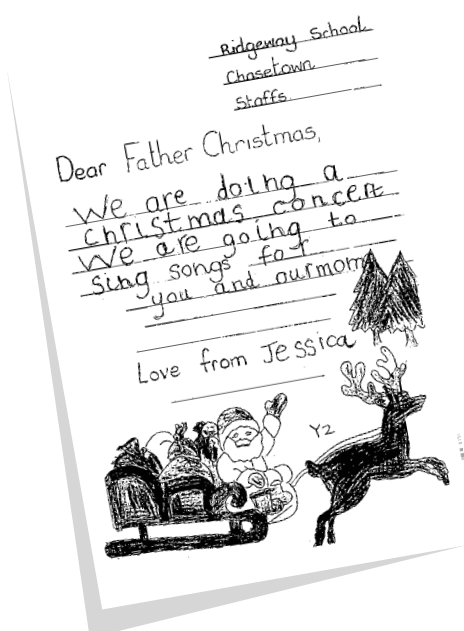 Ridgeway School
Chasetown
Staffs.
Dear Father Christmas,
We are doing a
christmas concert
We are going to
sing songs for
you and our mom
Love from Jessica
Y2